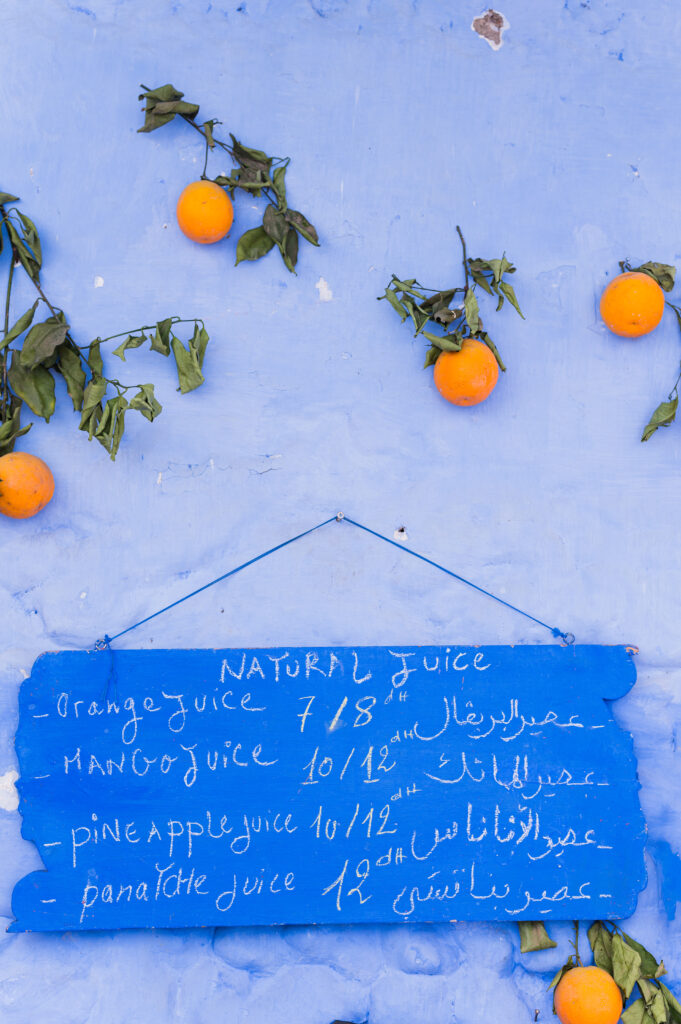 NATURAL JUICE
- Orange Juice 7/8 dH عصير البرتقال -
- MANGO JUICE 10/12 dH عصير المانك -
- PINEAPPLE JUICE 10/12 dH عصير الأناناس -
- panaîche juice 12 dH عصير بناتشي -